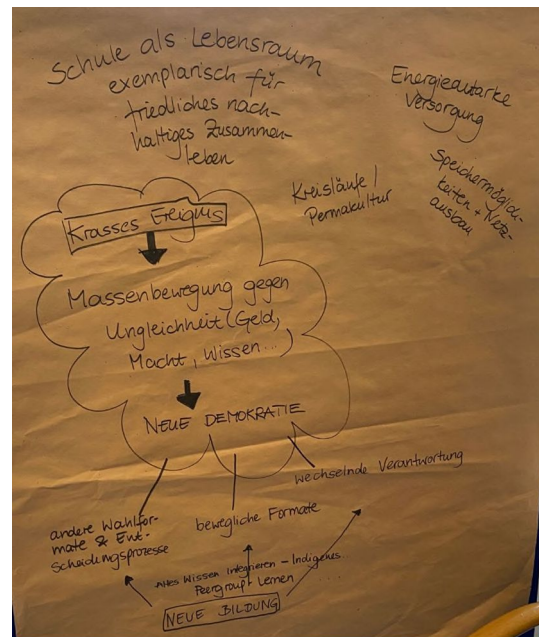 Schule als Lebensraum
exemplarisch für
friedliches nach-
haltiges Zusammen-
leben
Energieautarke
Versorgung
Speichermöglich-
keiten + Netz-
ausbau
Kreisläufe /
Permakultur
Krasses Ereignis
Massenbewegung gegen
Ungleichheit (Geld,
Macht, Wissen...)
NEUE DEMOKRATIE
wechselnde Verantwortung
bewegliche Formate
andere Wahlfor-
mate & Ent-
scheidungsprozesse
Altes Wissen integrieren - Indigenes
Peergroup Lernen ....
NEUE BILDUNG